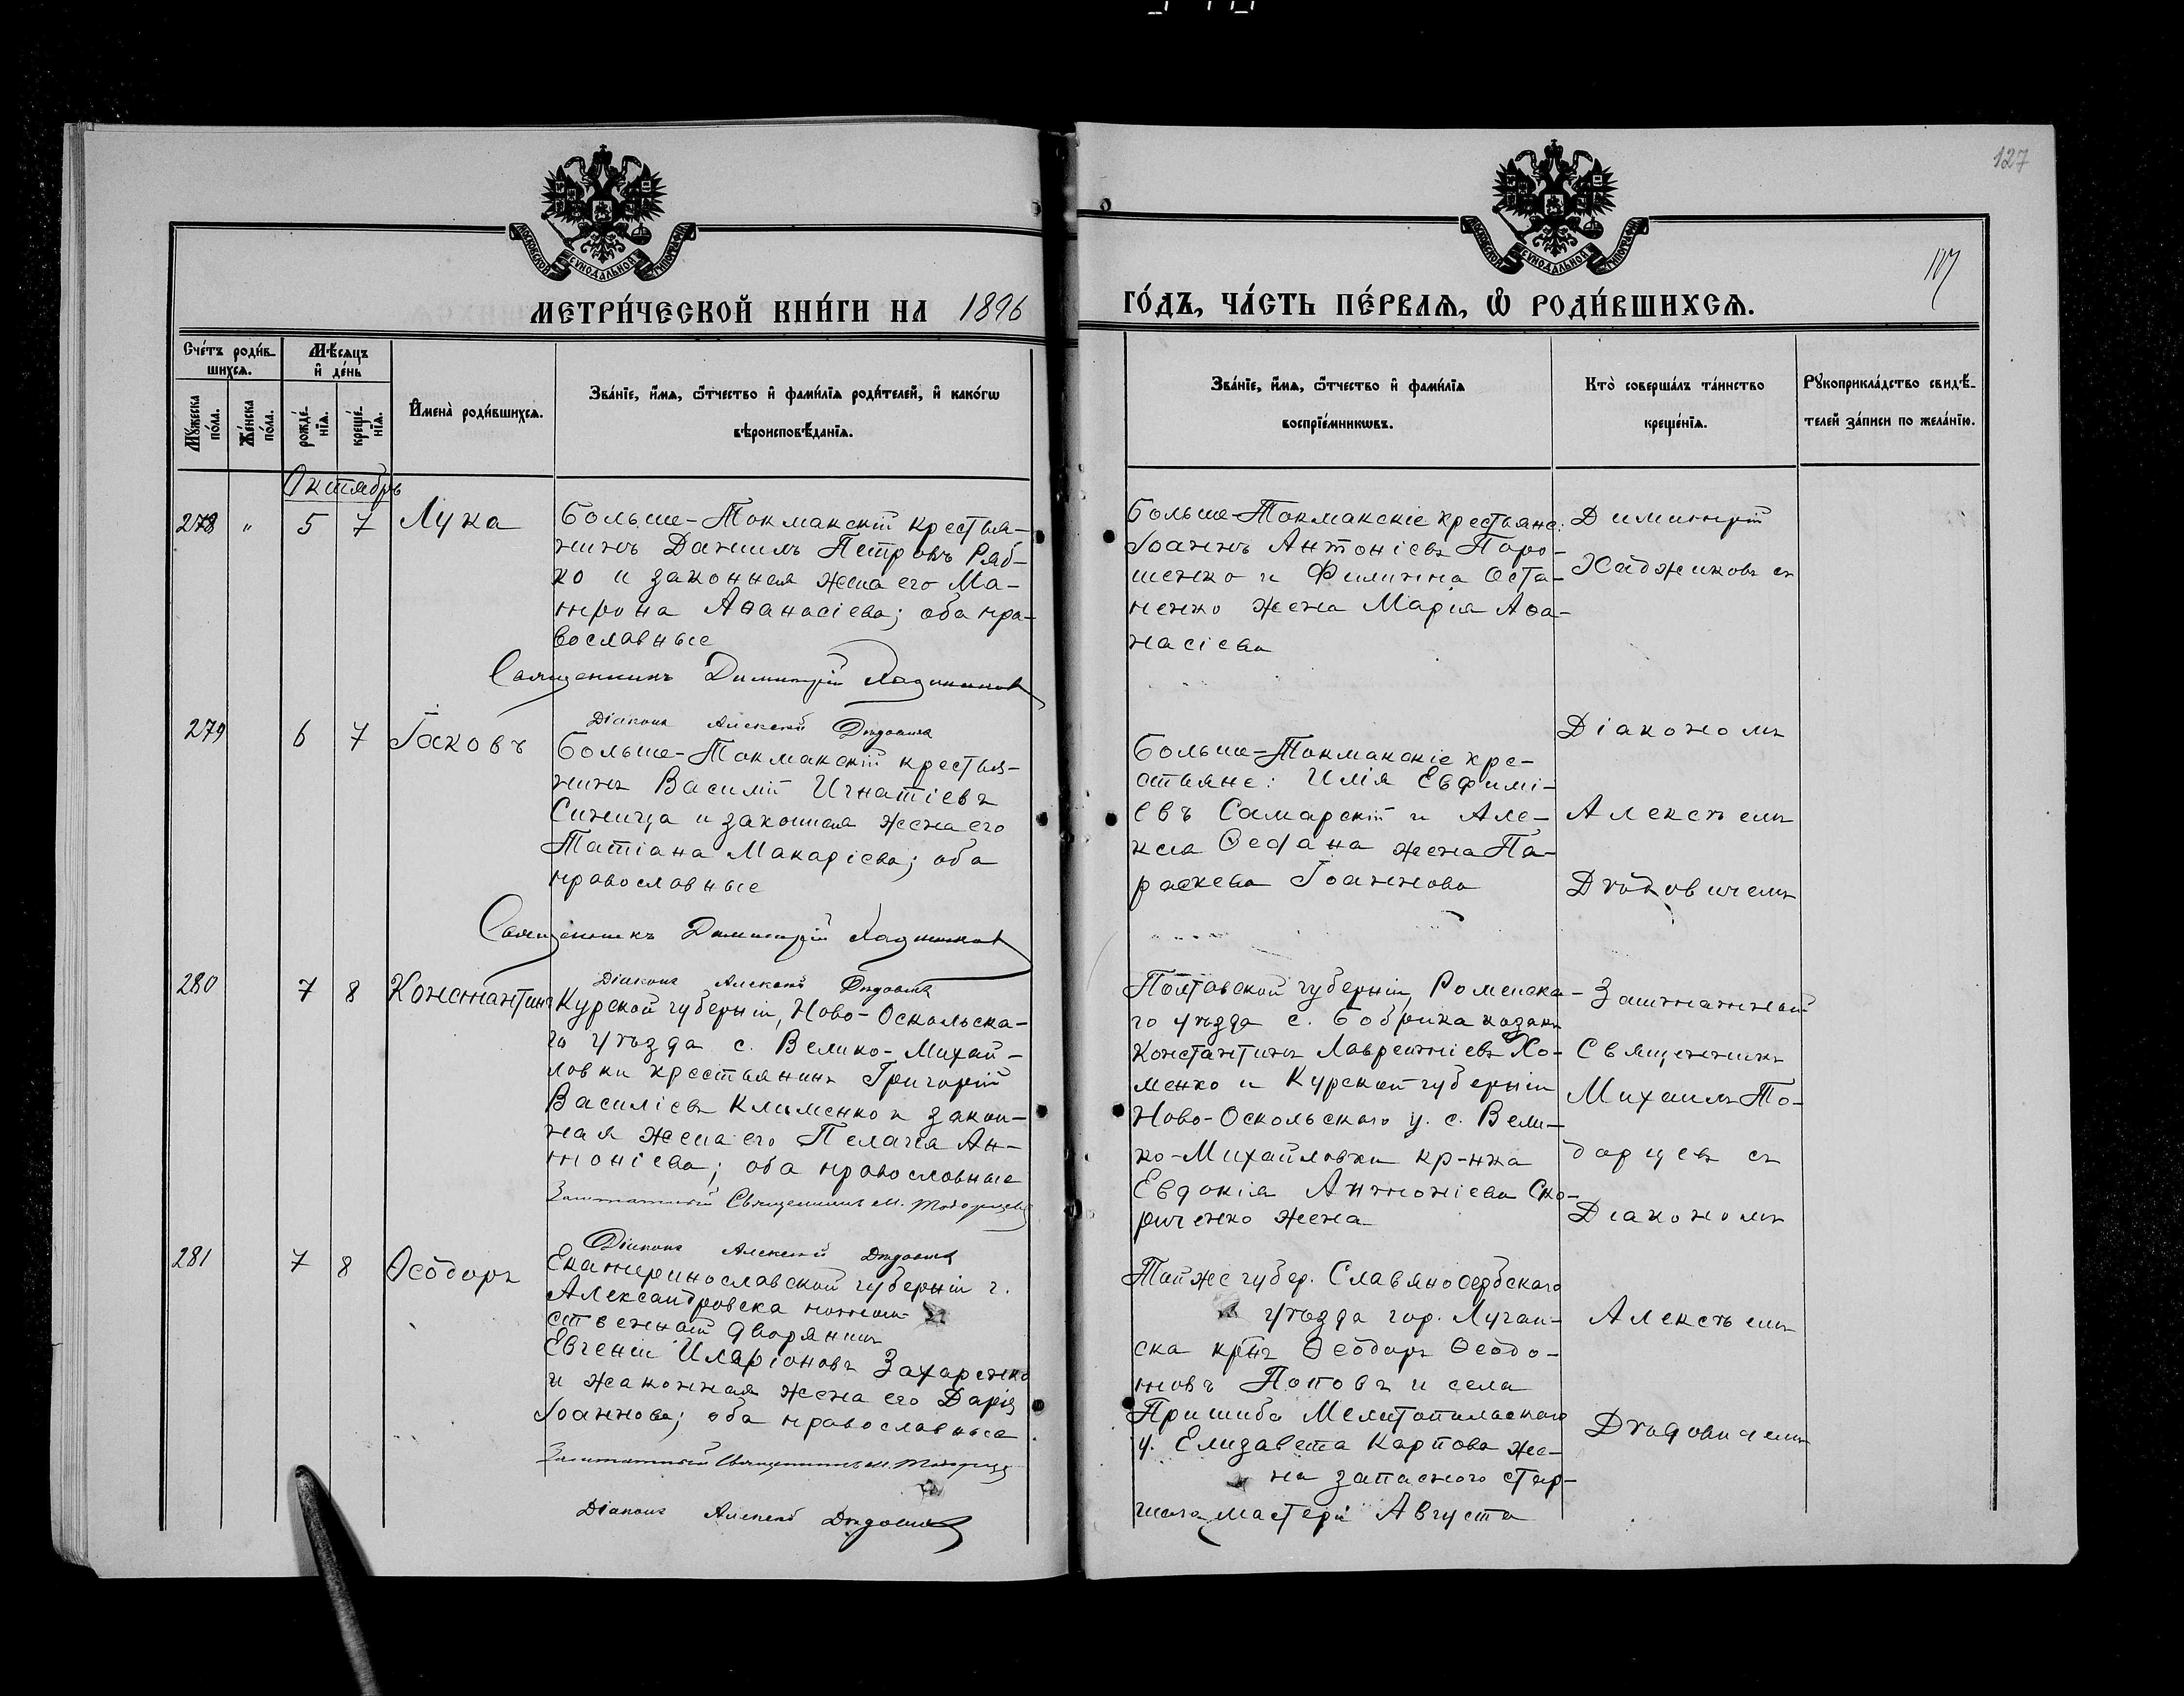 127
МОСКОВСКОЙ СѴНОДАЛЬНОЙ ТИПОГРАФІИ
МОСКОВСКОЙ СѴНОДАЛЬНОЙ ТИПОГРАФІИ
МЕТРИ́ЧЕСКОЙ КНИ́ГИ НА 1896
ГО́ДЪ, ЧА́СТЬ ПЕ́РВАѦ, Ѽ РОДИ́ВШИХСѦ.
Сче́тъ роди́в-
шихсѧ.
Мѣ́сѧцъ
и҆ де́нь
Мꙋ́жеска
по́ла.
Же́нска
по́ла.
рожде́-
нїѧ.
креще́-
нїѧ.
И҆мена̀ роди́вшихсѧ.
Зва́нїе, и҆́мѧ, ѻ҆́тчество и҆ фами́лїѧ роди́телей, и҆ како́гѡ
вѣроисповѣ́данїѧ.
Зва́нїе, и҆́мѧ, ѻ҆́тчество и҆ фами́лїѧ
воспрїе́мникѡвъ.
Кто̀ соверша́лъ та́инство
креще́нїѧ.
Рꙋкоприкла́дство свидѣ́-
телей за́писи по жела́нїю.
Октябрь
278 " 5 7 Лука
Больше-Токмакскій крестья-
нинъ Даниилъ Петровъ Ряб-
ко и законная жена его Ма-
трона Аѳанасіева; оба пра-
вославные
Священникъ Димитрій Хаджиновъ
Діаконъ Алексѣй
Больше-Токмакскіе крестьяне:
Іоаннъ Антоніевъ Поро-
шенко и Филиппа Оста-
пенко жена Марія Аѳа-
насіева
Димитрій
Хаджиновъ съ
279 6 7 Іаковъ
Больше-Токмакскій крестья-
нинъ Василій Игнатіевъ
Синица и законная жена его
Татіана Макаріева; оба
православные
Священникъ Димитрій Хаджиновъ
Діаконъ Алексѣй
Больше-Токмакскіе кре-
стьяне: Илія Евфимі-
евъ Самарскій и Але-
жена Па-
раскева Іоаннова
Діакономъ
Алексѣемъ
280 7 8 Константинъ
Курской губерніи, Ново-Оскольска-
го уѣзда с. Велико-Михай-
ловки крестьянинъ Григорій
Василіевъ Клименко и закон-
ная жена его Пелагія Ан-
тоніева; оба православные
Заштатный Священникъ М.
Діаконъ Алексѣй
Полтавской губерніи, Роменска-
го уѣзда с. Бобрика козакъ
Константинъ Лаврентіевъ Хо-
менко и Курской губерніи
Ново-Оскольскаго у. с. Вели-
ко-Михайловки кр-нка
Евдокія Антоніева Ско-
риченко жена
Заштатный
Священникъ
Михаилъ То-
дорцевъ съ
Діакономъ
281 7 8 Ѳеодоръ
Екатеринославской губерніи г.
Александровска потом-
ственный дворянинъ
Евгеній Иларіоновъ Захаренко
и жаконная жена его Дарія
Іоаннова; оба православные
Заштатный Священникъ М.
Діаконъ Алексѣй
Тойже губер. Славяносербскаго
уѣзда гор. Луган-
ска кр-нъ Ѳеодоръ Ѳеодо-
товъ Поповъ и села
Пришиба Мелитопольскаго
у. Елизавета Карпова же-
на запаснаго стар-
шаго мастера Августа
Алексѣемъ